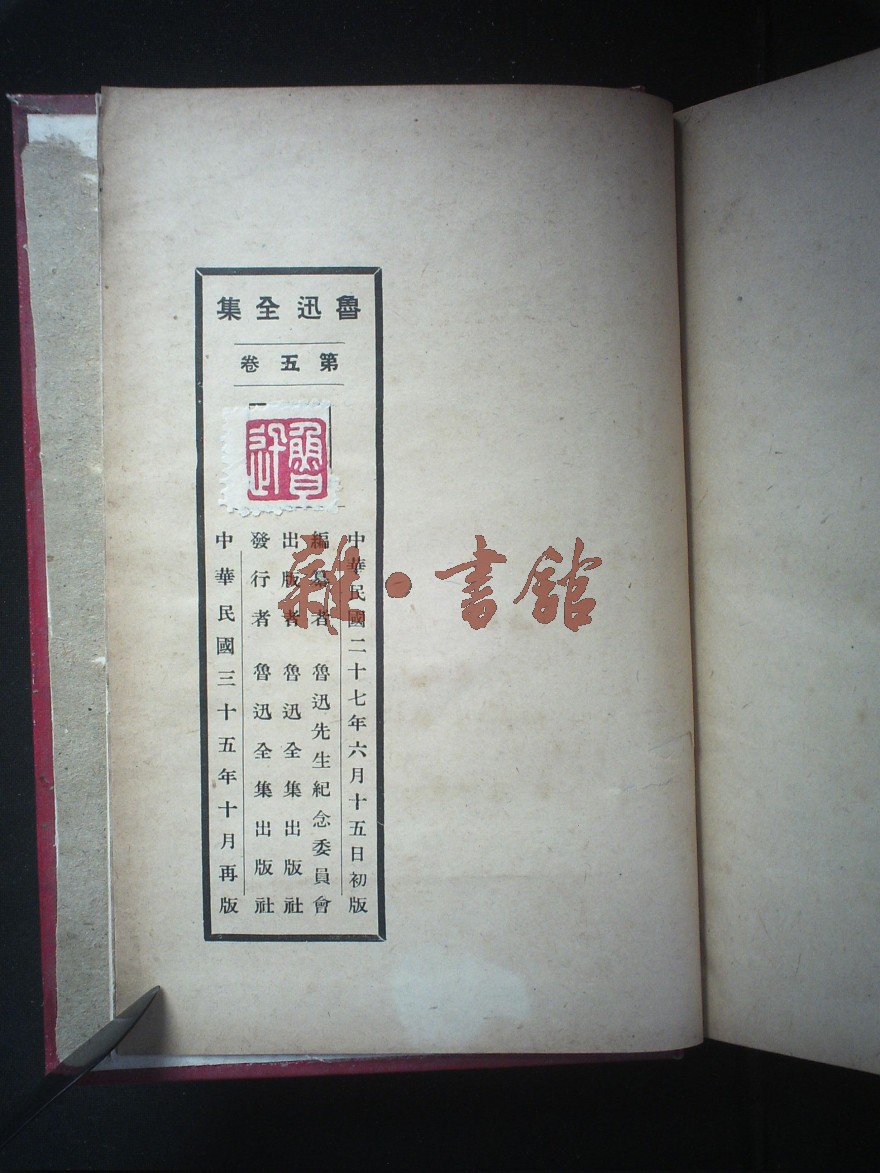 魯迅全集
第五卷
魯迅
中華民國二十七年六月十五日初版
編纂者 魯迅先生紀念委員會
出版者 魯迅全集出版社
發行者 魯迅全集出版社
中華民國三十五年十月再版
雜·書館